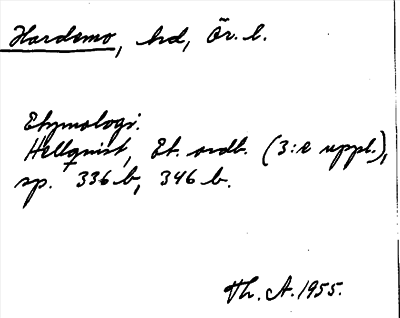 Hardemo, hd, Ör. l.
Etymologi.
Hellquist, Et. ordb. (3:e uppl.),
sp. 336 b, 346 b.
Th. A. 1955.